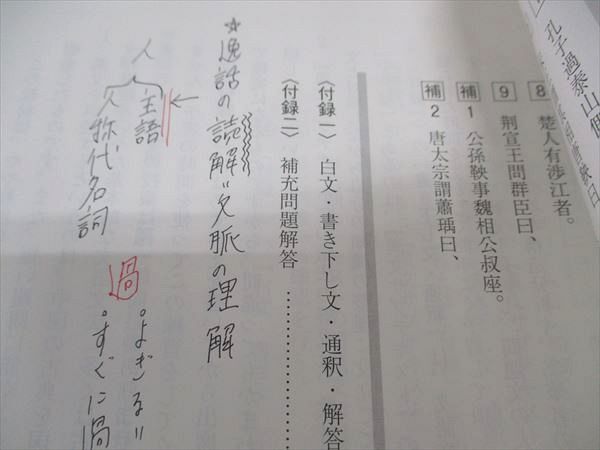 孔子過泰山側
8 楚人有渉江者。
9 荊宣王問群臣曰、
補1 公孫鞅事魏相公叔座。
補2 唐太宗謂蕭瑀曰、
〈付録一〉 白文・書き下し文・通釈・解答
〈付録二〉 補充問題解答 ……………
☆逸話の読解=文脈の理解
人
主語
人称代名詞
過
・よぎる=
・すぐに過